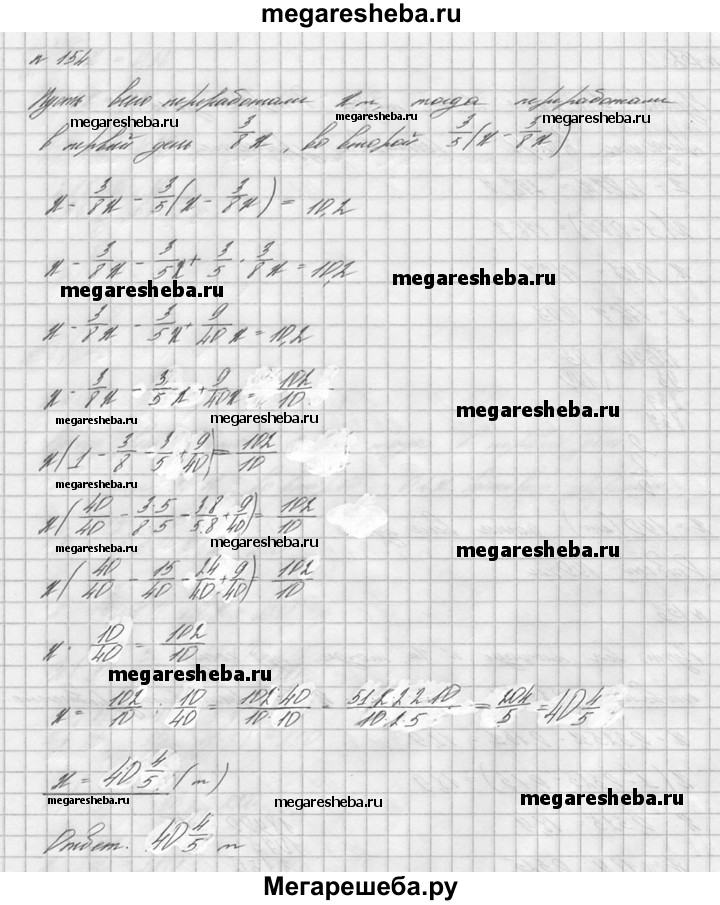 megaresheba.ru
n 154
Пусть всего переработали x т, тогда переработали
megaresheba.ru megaresheba.ru megaresheba.ru
в первый день 3/8 x, во второй 3/5(x - 3/8 x)
x - 3/8 x - 3/5(x - 3/8 x) = 10,2
x - 3/8 x - 3/5 x + 3/5 · 3/8 x = 10,2
megaresheba.ru megaresheba.ru
x - 3/8 x - 3/5 x + 9/40 x = 10,2
x - 3/8 x - 3/5 x + 9/40 x = 102/10
megaresheba.ru megaresheba.ru megaresheba.ru
x(1 - 3/8 - 3/5 + 9/40) = 102/10
megaresheba.ru
x(40/40 - 3·5/8·5 - 3·8/5·8 + 9/40) = 102/10
megaresheba.ru megaresheba.ru megaresheba.ru
x(40/40 - 15/40 - 24/40 + 9/40) = 102/10
x · 10/40 = 102/10
megaresheba.ru
x = 102/10 : 10/40 = 102·40/10·10 = 51·2·2·2·10/10·2·5 = 204/5 = 40 4/5
x = 40 4/5 (т)
megaresheba.ru megaresheba.ru megaresheba.ru
Ответ. 40 4/5 т
Мегарешеба.ру